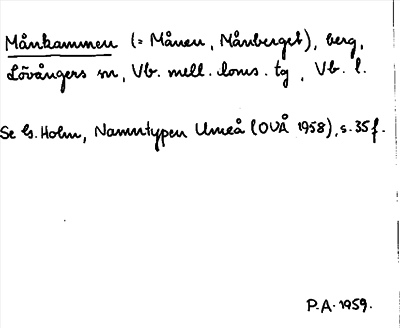 Månkammen (= Månen, Månberget), berg,
Lövångers sn, Vb. mell. loms. tg, Vb. l.
Se G. Holm, Namntypen Umeå (OUÅ 1958), s. 35 f.
P.A. 1959.